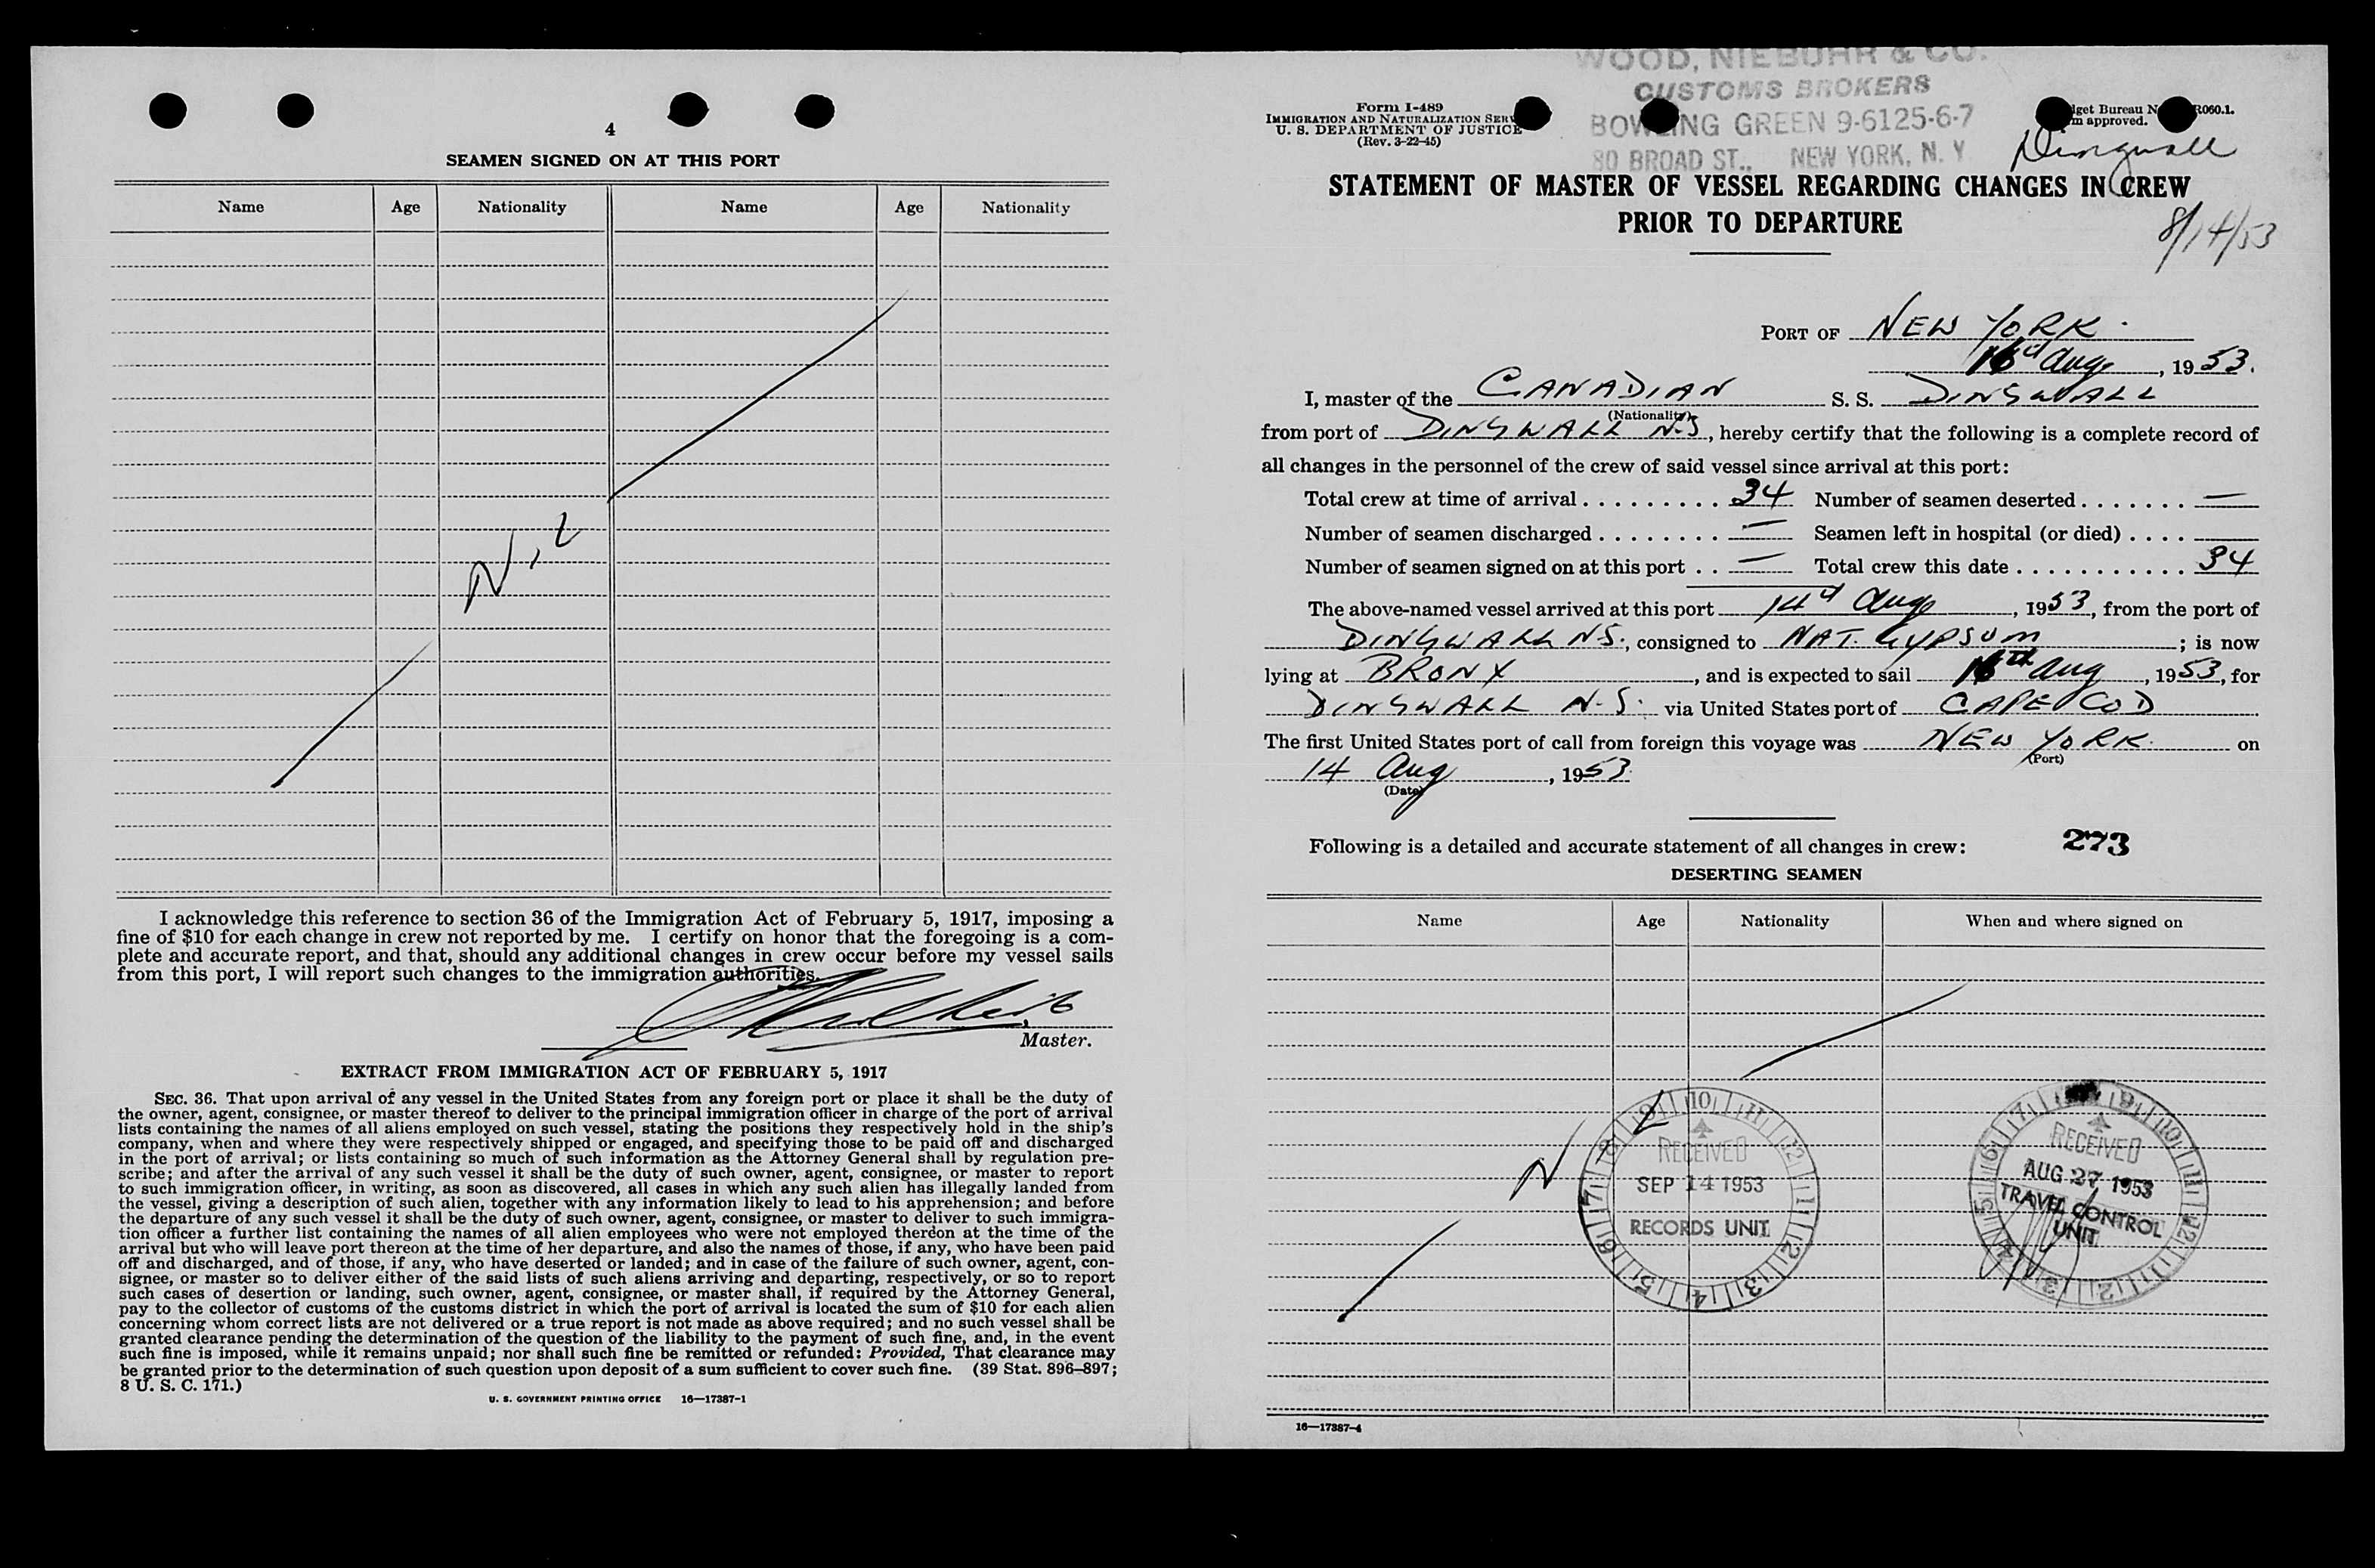 4
SEAMEN SIGNED ON AT THIS PORT
Name Age Nationality Name Age Nationality
Nil
I acknowledge this reference to section 36 of the Immigration Act of February 5, 1917, imposing a
fine of $10 for each change in crew not reported by me. I certify on honor that the foregoing is a com-
plete and accurate report, and that, should any additional changes in crew occur before my vessel sails
from this port, I will report such changes to the immigration authorities.
Master.
EXTRACT FROM IMMIGRATION ACT OF FEBRUARY 5, 1917
SEC. 36. That upon arrival of any vessel in the United States from any foreign port or place it shall be the duty of
the owner, agent, consignee, or master thereof to deliver to the principal immigration officer in charge of the port of arrival
lists containing the names of all aliens employed on such vessel, stating the positions they respectively hold in the ship's
company, when and where they were respectively shipped or engaged, and specifying those to be paid off and discharged
in the port of arrival; or lists containing so much of such information as the Attorney General shall by regulation pre-
scribe; and after the arrival of any such vessel it shall be the duty of such owner, agent, consignee, or master to report
to such immigration officer, in writing, as soon as discovered, all cases in which any such alien has illegally landed from
the vessel, giving a description of such alien, together with any information likely to lead to his apprehension; and before
the departure of any such vessel it shall be the duty of such owner, agent, consignee, or master to deliver to such immigra-
tion officer a further list containing the names of all alien employees who were not employed thereon at the time of the
arrival but who will leave port thereon at the time of her departure, and also the names of those, if any, who have been paid
off and discharged, and of those, if any, who have deserted or landed; and in case of the failure of such owner, agent, con-
signee, or master so to deliver either of the said lists of such aliens arriving and departing, respectively, or so to report
such cases of desertion or landing, such owner, agent, consignee, or master shall, if required by the Attorney General,
pay to the collector of customs of the customs district in which the port of arrival is located the sum of $10 for each alien
concerning whom correct lists are not delivered or a true report is not made as above required; and no such vessel shall be
granted clearance pending the determination of the question of the liability to the payment of such fine, and, in the event
such fine is imposed, while it remains unpaid; nor shall such fine be remitted or refunded: Provided, That clearance may
be granted prior to the determination of such question upon deposit of a sum sufficient to cover such fine. (39 Stat. 896–897;
8 U. S. C. 171.)
U. S. GOVERNMENT PRINTING OFFICE 16—17387-1
WOOD, NIEBUHR & CO.
CUSTOMS BROKERS
BOWLING GREEN 9-6125-6-7
80 BROAD ST., NEW YORK, N. Y
Form I-489
IMMIGRATION AND NATURALIZATION SERV
U. S. DEPARTMENT OF JUSTICE
(Rev. 3-22-45)
get Bureau N R060.1.
m approved.
Dingwall
STATEMENT OF MASTER OF VESSEL REGARDING CHANGES IN CREW
PRIOR TO DEPARTURE
8/14/53
PORT OF NEW YORK.
16th Aug, 1953.
I, master of the CANADIAN S. S. DINGWALL
(Nationality)
from port of DINGWALL N.S, hereby certify that the following is a complete record of
all changes in the personnel of the crew of said vessel since arrival at this port:
Total crew at time of arrival . . . . . . . . . . 34 Number of seamen deserted . . . . . . . —
Number of seamen discharged . . . . . . . . — Seamen left in hospital (or died) . . . .
Number of seamen signed on at this port . . — Total crew this date . . . . . . . . . . . 34
The above-named vessel arrived at this port 14th Aug, 1953, from the port of
DINGWALL N.S., consigned to NAT. GYPSUM; is now
lying at BRONX, and is expected to sail 16th Aug, 1953, for
DINGWALL N.S. via United States port of CAPE COD
The first United States port of call from foreign this voyage was NEW YORK. on
(Port)
14 Aug, 1953.
(Date)
Following is a detailed and accurate statement of all changes in crew: 273
DESERTING SEAMEN
Name Age Nationality When and where signed on
Nil
RECEIVED
SEP 14 1953
RECORDS UNIT
RECEIVED
AUG 27 1953
TRAVEL CONTROL
UNIT
16—17387-4